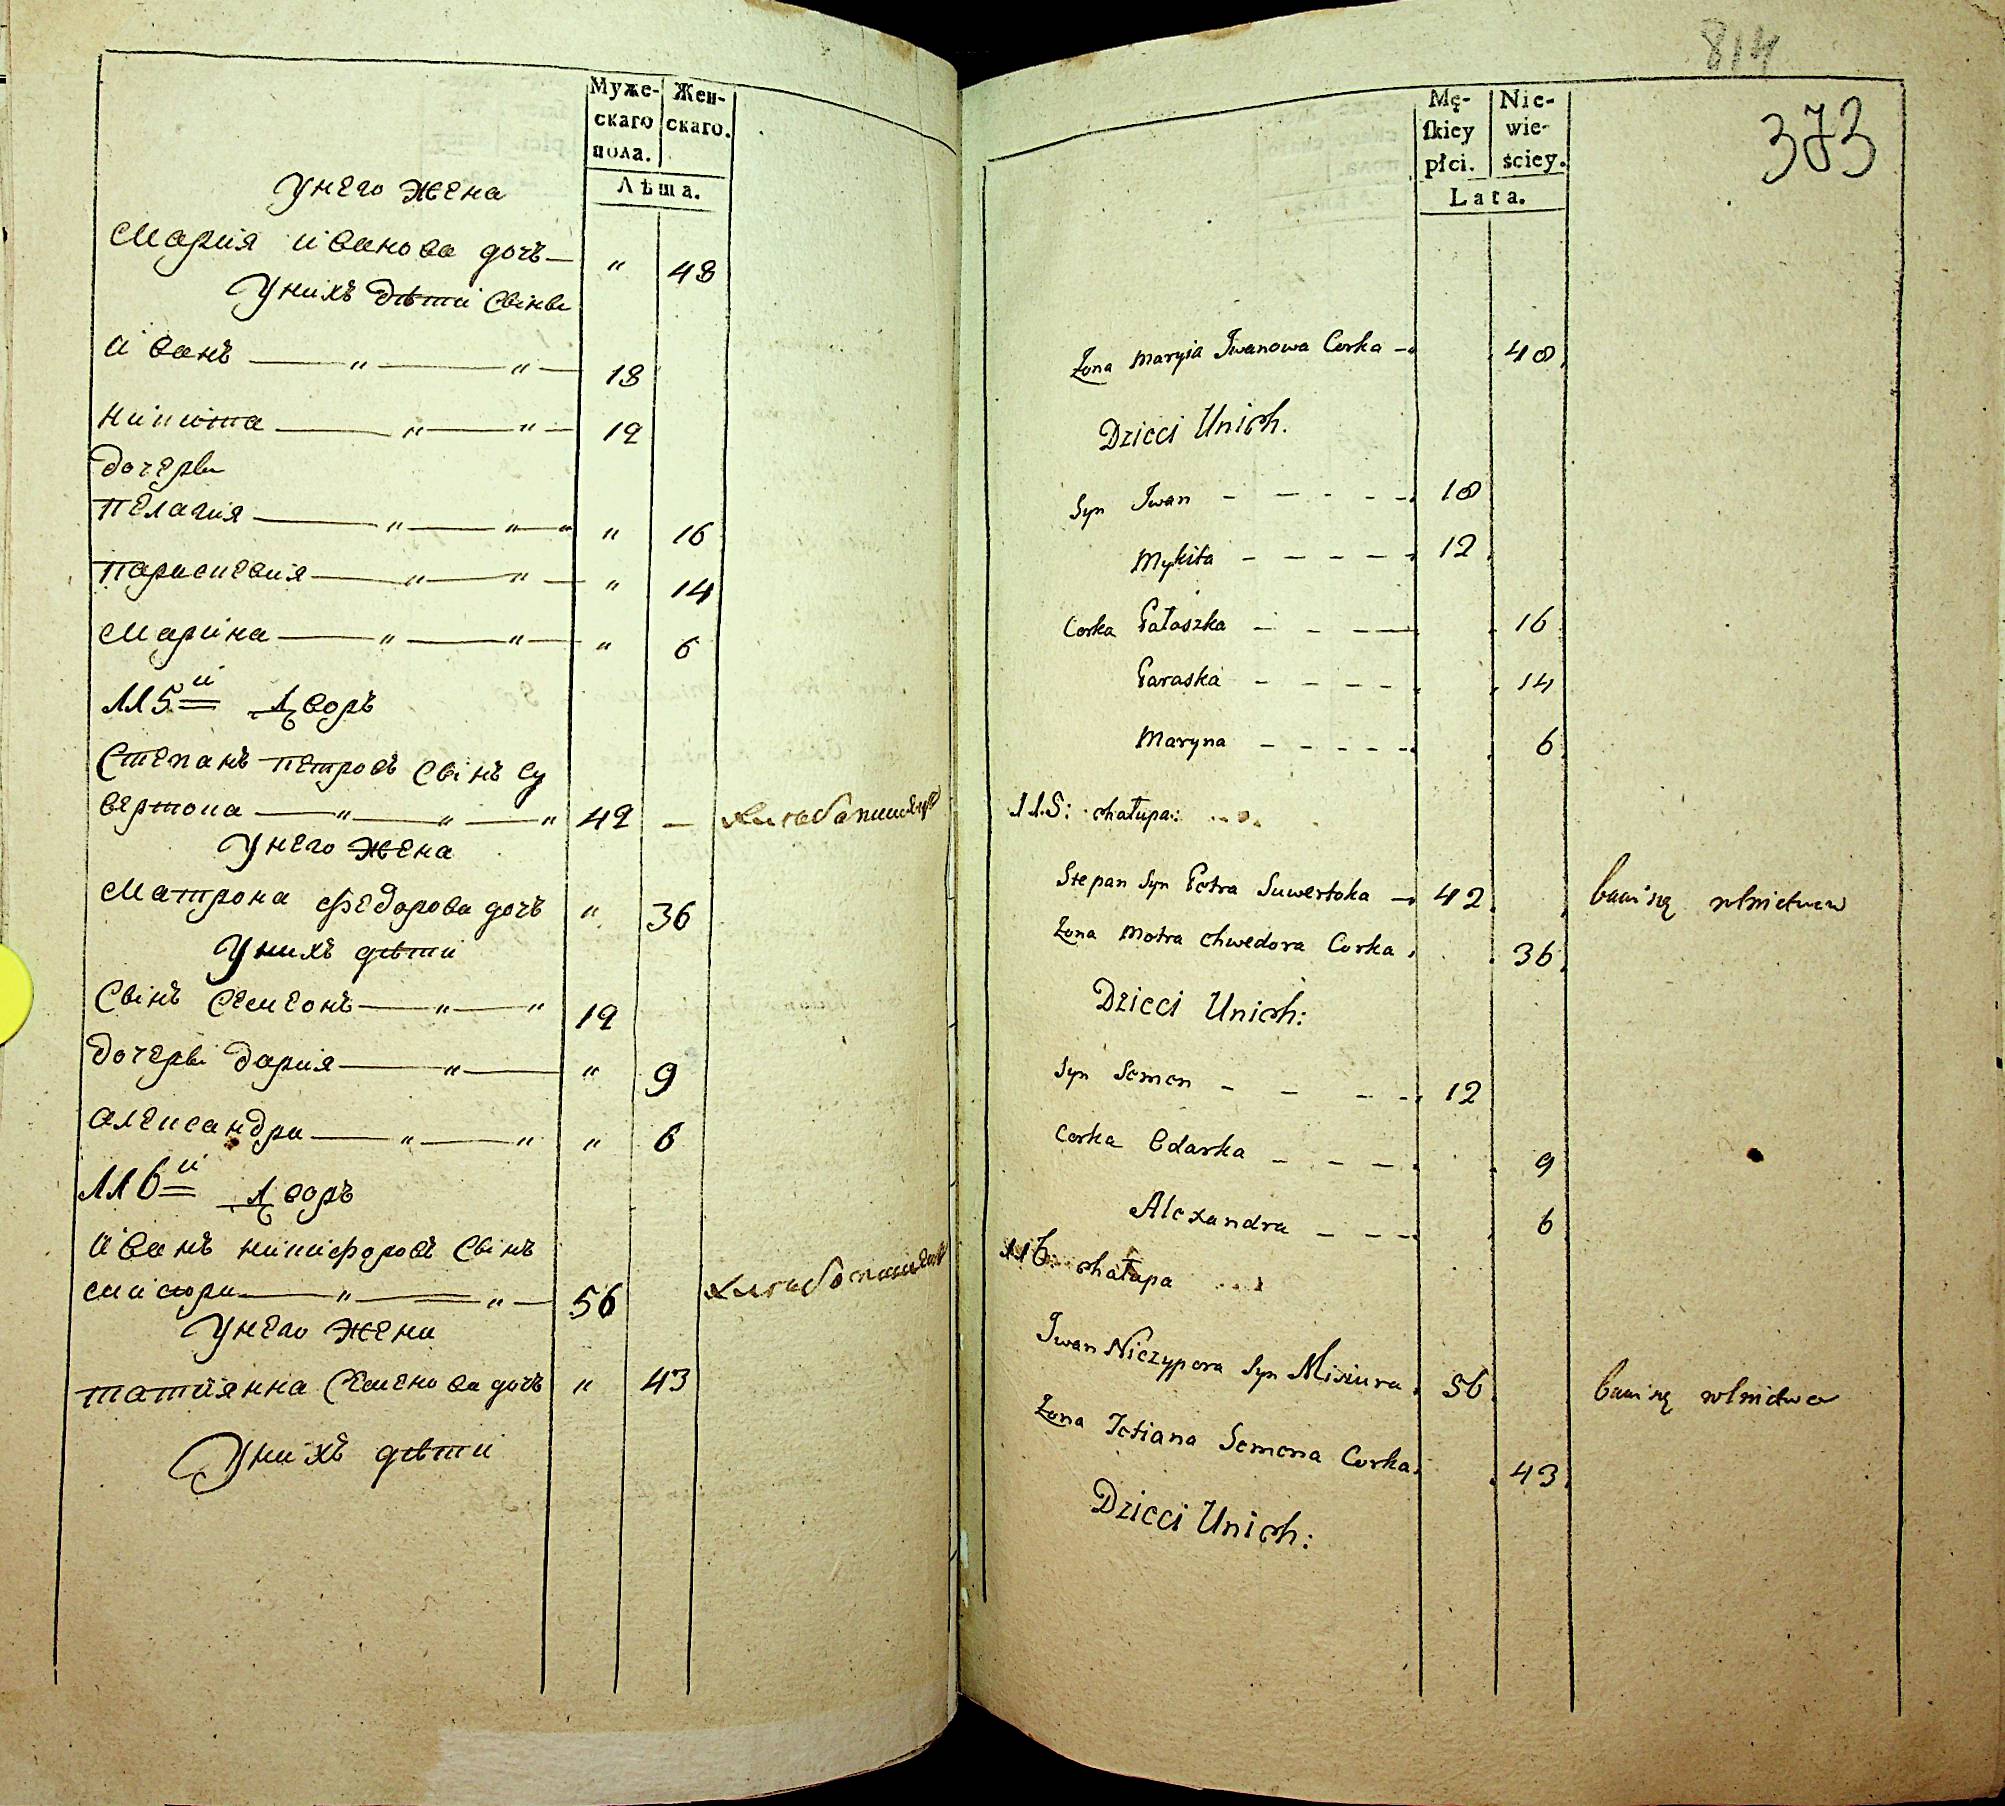 Муже-
скаго
пола.
Жен-
скаго.
Лѣта.
У него жена
Мария иванова дочь — " 48
У нихъ дѣти Сыны
иванъ — " — " — 18
никита — " — " — 12
Дочеры
пелагия — " — " — " " 16
параскевия — " — " — " 14
Марина — " — " — " 6
115й Дворъ
Степанъ петровъ Сынъ Су
вертока — " — " — " 42 — хлебопашецъ
У него жена
Матрона федорова дочъ " 36
У нихъ дѣти
Сынъ Семенъ — " — " 12
Дочеры Дария — " — " 9
александра — " — " " 6
116й Дворъ
иванъ никифоровъ Сынъ
мисюра — " — " — 56 хлебопашецъ
У него жена
татиянна Семенова дочъ " 43
У нихъ дѣти
814
373
Mę-
ſkiey
płci.
Nie-
wie-
ściey.
Lata.
Żona Maryia Iwanowa Corka — 48
Dzieci Unich.
Syn Iwan - - - - - 18
Mykita - - - - - 12
Corka Pałaszka - - - - 16
Paraska - - - - 14
Maryna - - - - - 6
115: chałupa:
Stepan Syn Petra Suwertoka — 42 bawi się
Żona Motra Chwedora Corka 36
Dzieci Unich:
Syn Semen - - - - 12
Corka Odarka - - - 9
Alexandra - - - - 6
116: chałupa
Iwan Niczypora Syn Misiura 56 bawi się
Żona Tetiana Semena Corka 43
Dzieci Unich: